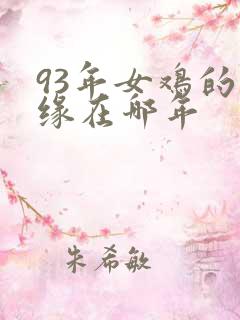 93年女鸡的
缘在哪年
朱希敏